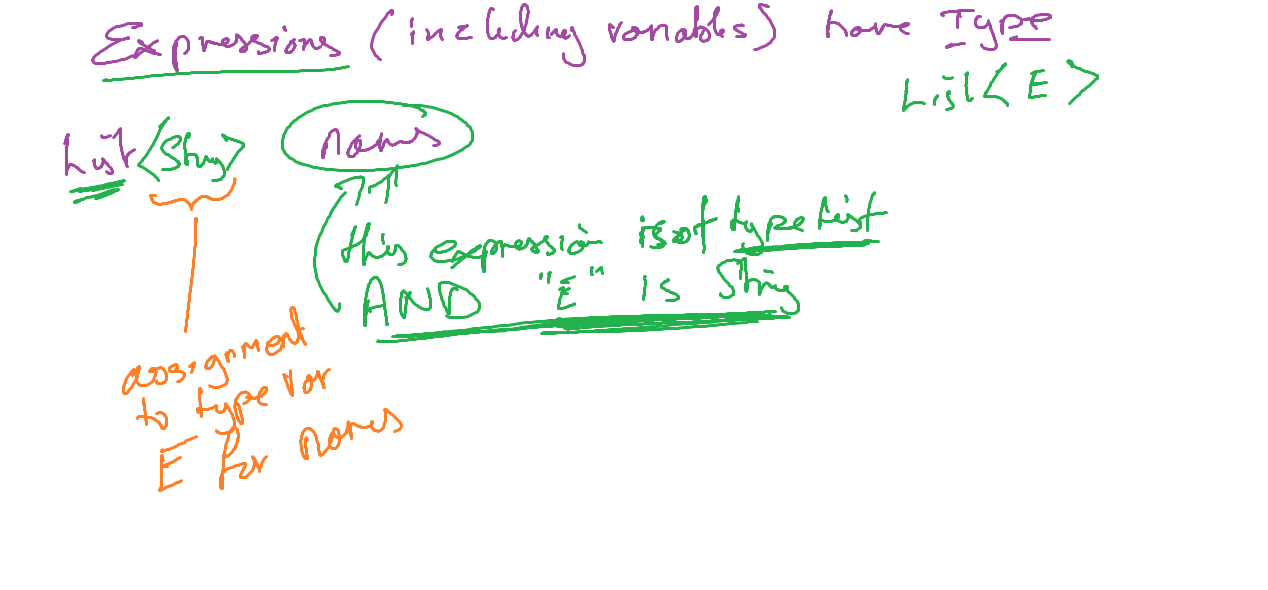 Expressions (including variables) have Type
List<E>
List<String> names
this expression is of type List
AND "E" is String
assignment
to type var
E for names